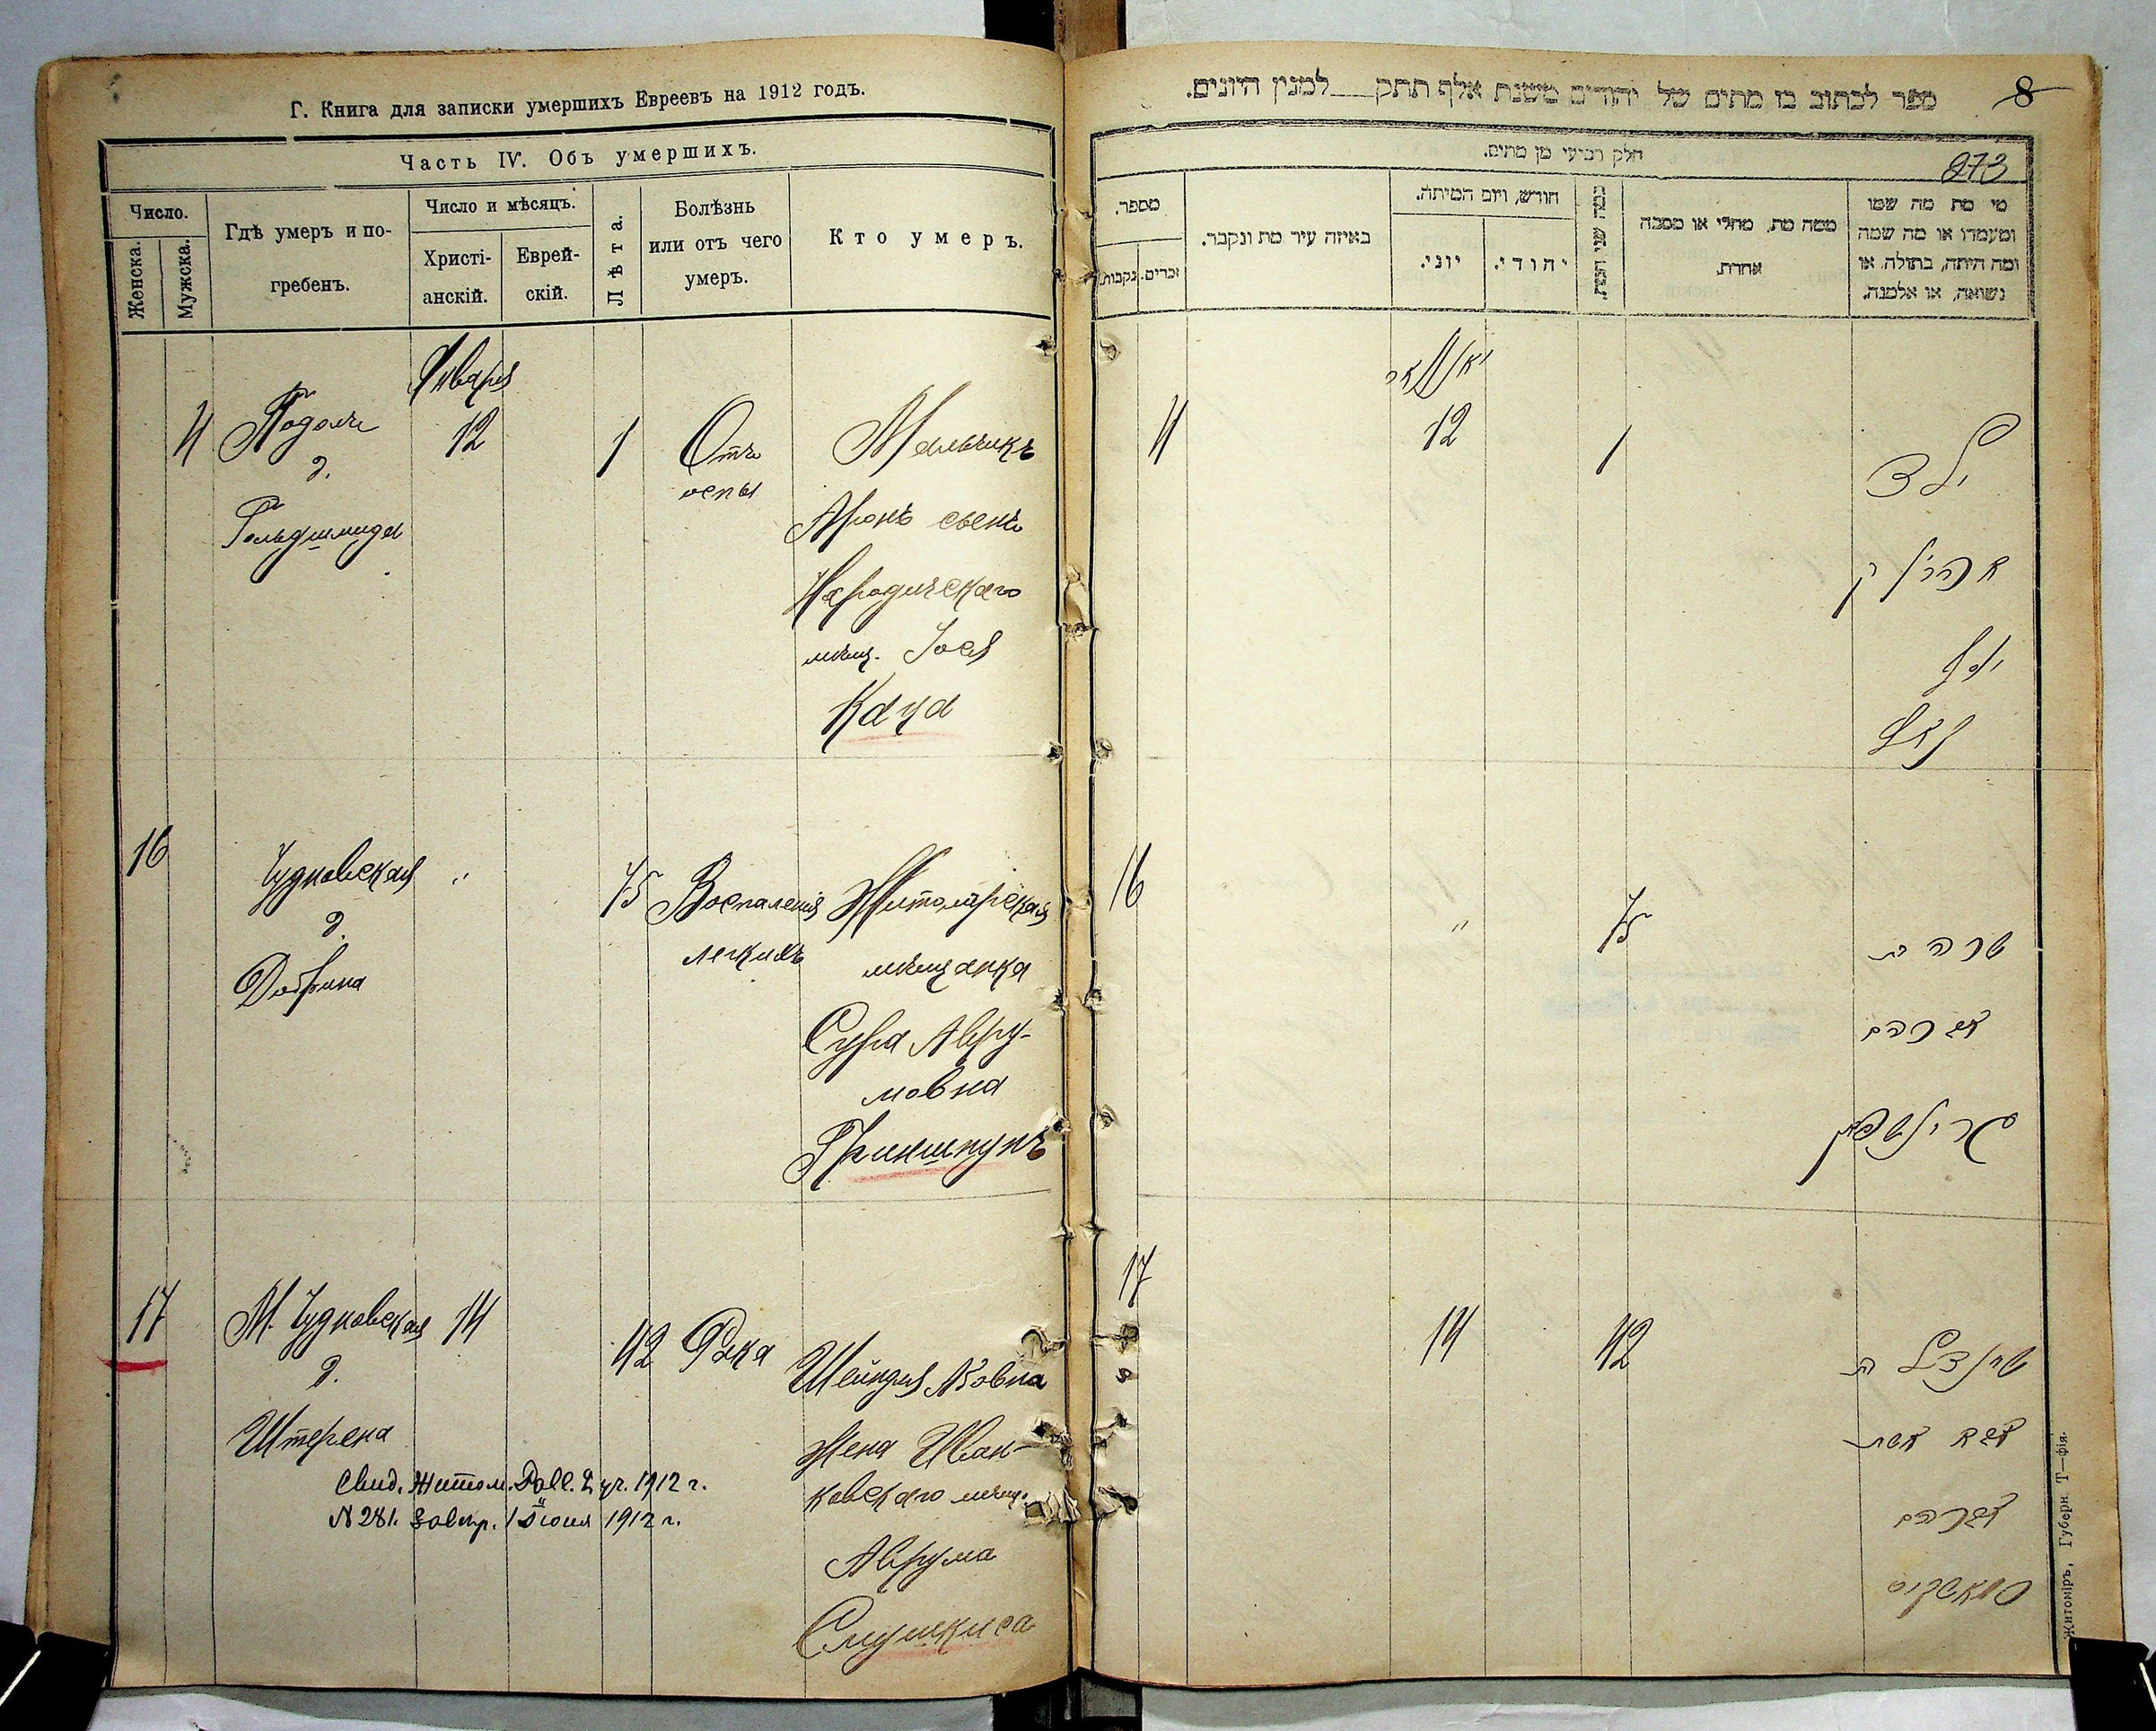 Г. Книга для записки умершихъ Евреевъ на 1912 годъ.
Часть IV. Объ умершихъ.
Число.
Женска.
Мужска.
Гдѣ умеръ и по-
гребенъ.
Число и мѣсяцъ.
Христі-
анскій.
Еврей-
скій.
Лѣта.
Болѣзнь
или отъ чего
умеръ.
Кто умеръ.
Января
4
12
1
Отъ
оспы
д.
Гольдшмида
Мальчикъ
Аронъ сынъ
Народическаго
мѣщ. Іося
Каца
16
Чудновская
д.
Добрина
"
75
Воспаленія
легкихъ
Житомірская
мѣщанка
Сура Авру-
мовна
Гриншпунъ
17
М. Чудновская
д.
Штерена
14
42
Рака
Шейндля
жена Иван-
ковскаго мѣщ.
Аврума
Слушкиса
Свид. Житом. 1912 г.
№ 281. 1912 г.
ספר לכתוב בו מתים של יהודים משנת אלף תתק למנין היונים.
8
חלק רביעי מן מתים.
273
מספר.
נקבות.
זכרים.
באיזה עיר מת ונקבר.
חודש, ויום המיתה.
יוני.
יהודי.
כמה שני חיות.
ממה מת, מחלי או מסבה
אחרת.
מי מת מה שמו
ומעמדו או מה שמה
ומה היתה, בתולה, או
נשואה, או אלמנה.
יאנואר
4
12
1
ילד
יוסף
קאץ
16
"
75
שרה בת
אברהם
גרינשפון
17
14
42
שיינדל בת
אשת
אברהם
Житоміръ, Губерн. Т—фія.